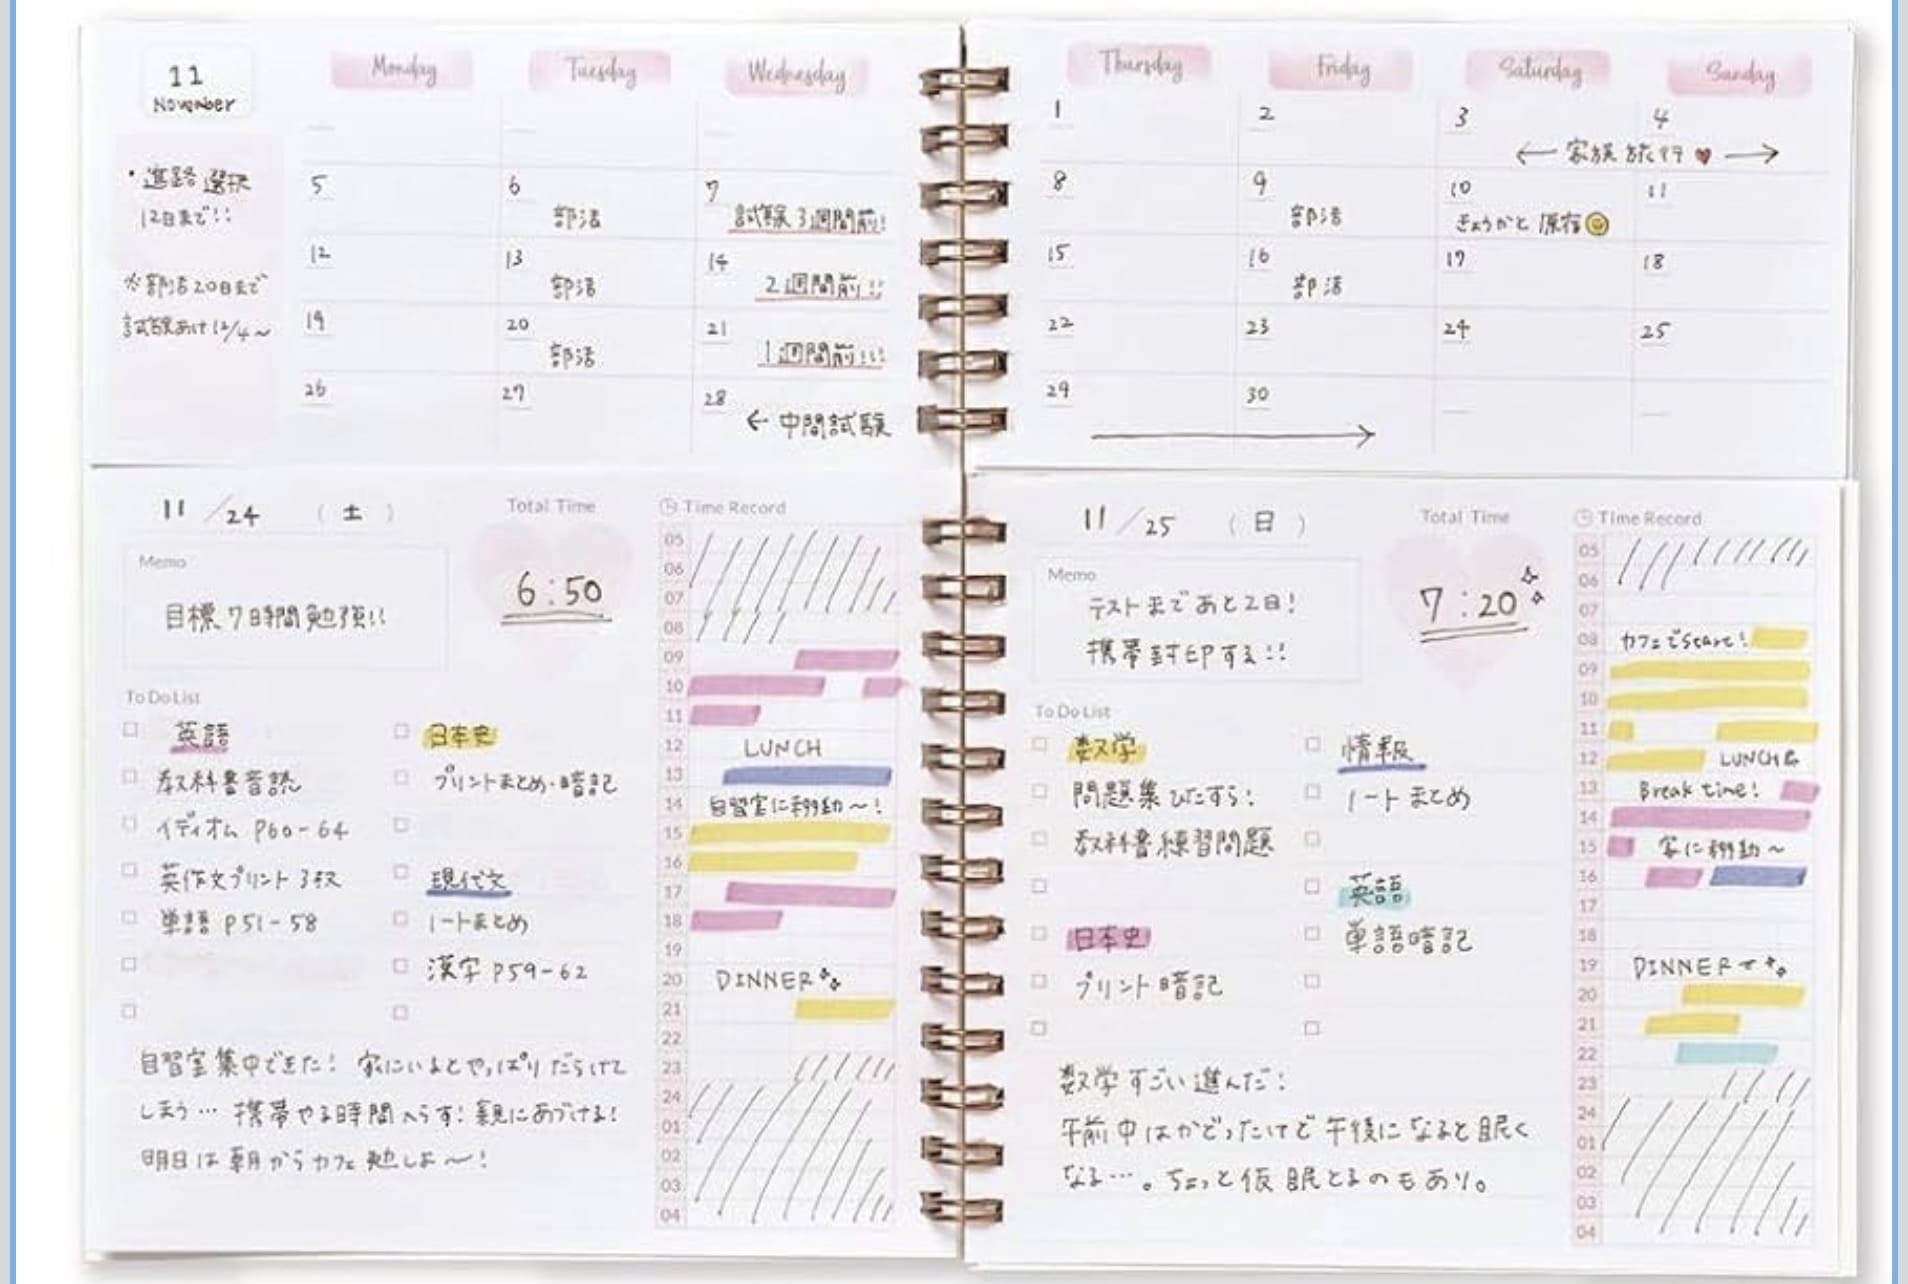 11
November
Monday Tuesday Wednesday Thursday Friday Saturday Sunday
・進路選択
12日まで!!
※部活20日まで
試験あけ12/4～
1 2 3 4
← 家族旅行♥ →
5 6 7 8 9 10 11
部活 試験3週間前! 部活 きょうかと原宿
12 13 14 15 16 17 18
部活 2週間前!! 部活
19 20 21 22 23 24 25
部活 1週間前!!!
26 27 28 29 30
← 中間試験 →
11/24 (土)
Total Time
6:50
Memo
目標7時間勉強!!
To Do List
英語
教科書音読
イディオム P60-64
英作文プリント3枚
単語 P51-58
日本史
プリントまとめ・暗記
現代文
ノートまとめ
漢字 P59-62
自習室集中できた! 家にいるとやっぱりだらけて
しまう… 携帯やる時間へらす! 親にあづける!
明日は朝からカフェ勉しよ〜!
Time Record
05
06
07
08
09
10
11
12 LUNCH
13
14 自習室に移動～!
15
16
17
18
19
20 DINNER
21
22
23
24
01
02
03
04
11/25 (日)
Total Time
7:20
Memo
テストまであと2日!
携帯封印する!!
To Do List
数学
問題集ひたすら!
教科書練習問題
日本史
プリント暗記
情報
ノートまとめ
英語
単語暗記
数学すごい進んだ!
午前中はかどったけど午後になると眠く
なる…。ちょっと仮眠とるのもあり。
Time Record
05
06
07
08 カフェでStart!
09
10
11
12 LUNCH
13 Break time!
14
15 家に移動～
16
17
18
19 DINNER
20
21
22
23
24
01
02
03
04